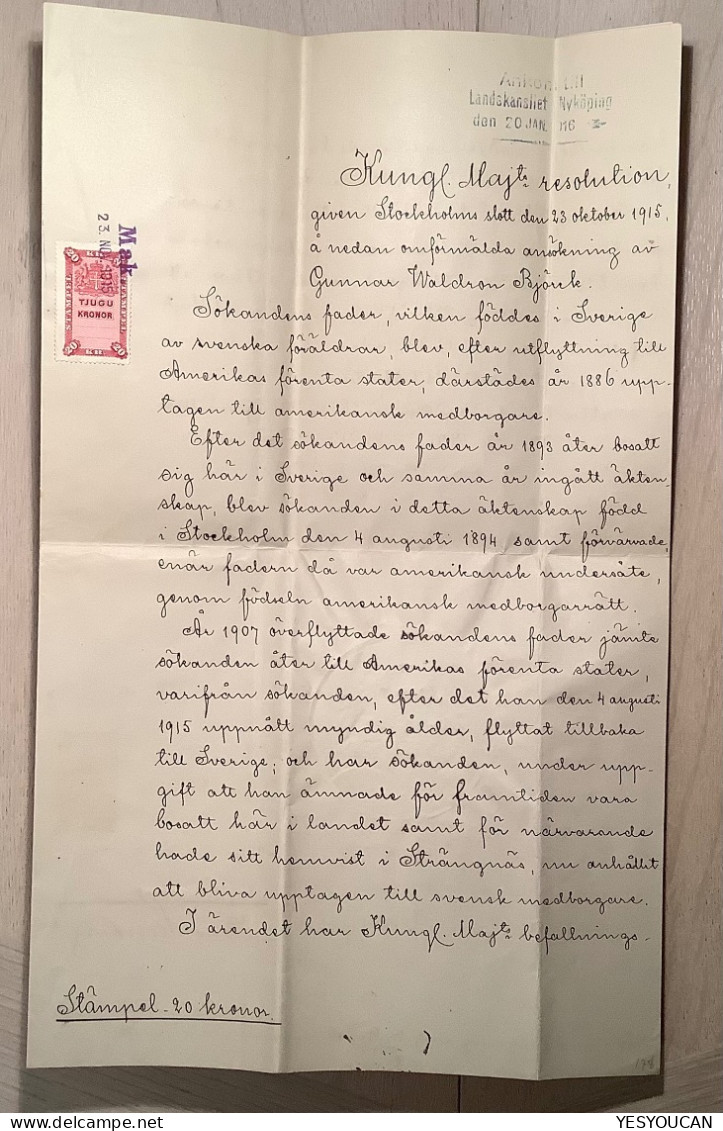 Landskansliet Nyköping
den 20 JAN.
Kungl. Maj:ts resolution,
given Stockholms slott den 23 oktober 1915,
å nedan omförmälda ansökning av
Gunnar Waldron Björck.
Mak
23. 1915
20 20
STÄMPEL
TJUGU
KRONOR
20 20
Sökandens fader, vilken föddes i Sverige
av svenska föräldrar, blev, efter utflyttning till
Amerikas förenta stater, därstädes år 1886 upp-
tagen till amerikansk medborgare.
Efter det sökandens fader år 1893 åter bosatt
sig här i Sverige och samma år ingått äkten-
skap, blev sökanden i detta äktenskap född
i Stockholm den 4 augusti 1894 samt förvärvade,
enär fadern då var amerikansk undersåte,
genom födseln amerikansk medborgarrätt.
År 1907 överflyttade sökandens fader jämte
sökanden åter till Amerikas förenta stater,
varifrån sökanden, efter det han den 4 augusti
1915 uppnått myndig ålder, flyttat tillbaka
till Sverige; och har sökanden, under upp-
gift att han ämnade för framtiden vara
bosatt här i landet samt för närvarande
hade sitt hemvist i Strängnäs, nu anhållit
att bliva upptagen till svensk medborgare.
I ärendet har Kungl. Maj:ts befallnings-
Stämpel - 20 kronor.
YESYOUCAN